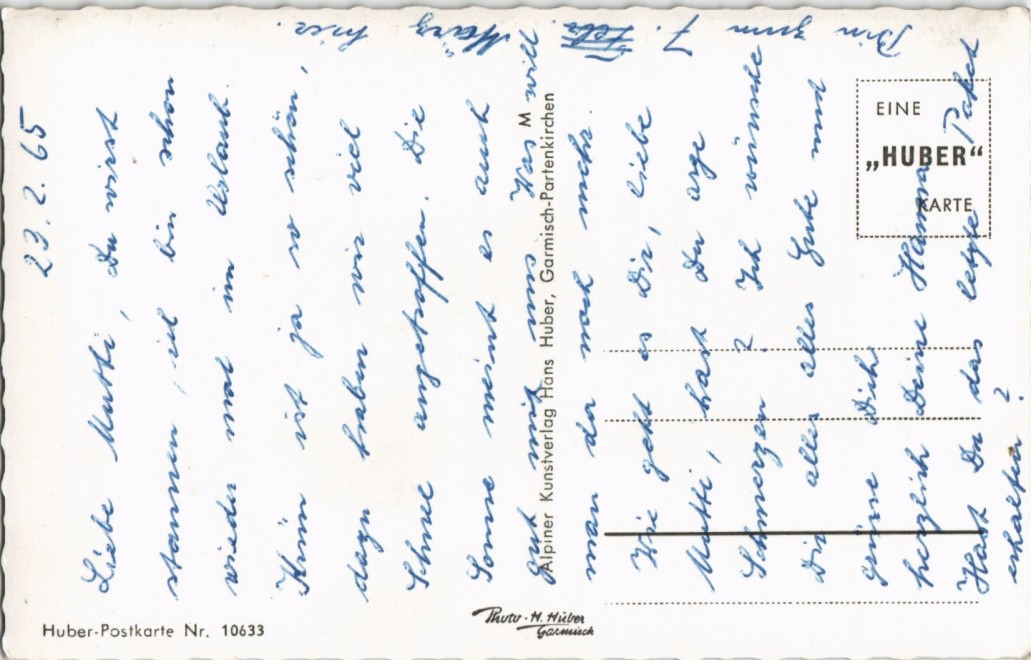 23.2.65
Liebe Mutti, Du wirst
staunen, ich bin schon
wieder mal im Urlaub.
Krün ist ja so schön,
dazu haben wir viel
Schnee angetroffen. Die
Sonne meint es auch
gut mit uns. Was will
man da noch mehr.
Wie geht es Dir, liebe
Mutti, hast Du arge
Schmerzen? Ich wünsche
Dir alles alles Gute und
grüße Dich
herzlich Deine Hanna
Hast Du das letzte Paket
erhalten?
Bin zum 7. Feb. März hier.
EINE
„HUBER“
KARTE
M
Alpiner Kunstverlag Hans Huber, Garmisch-Partenkirchen
Huber-Postkarte Nr. 10633
Photo-H. Huber
Garmisch